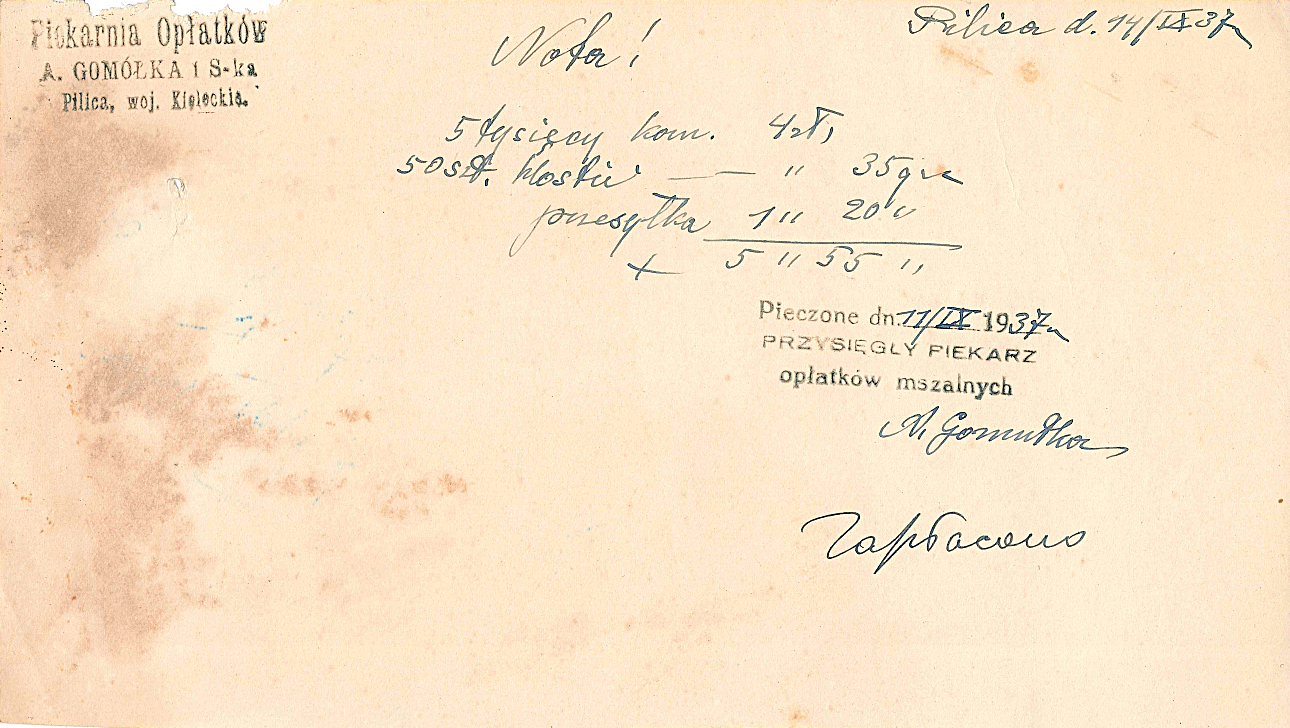 Piekarnia Opłatków
A. GOMÓŁKA i S-ka
Pilica, woj. Kieleckie.
Pilica d. 14/IX 37r
Nota!
5 tysięcy kom. 4 zł,
50 szt. hostii — " 35 gr
przesyłka 1 " 20 "
+ 5 " 55 "
Pieczone dn. 11/IX 1937r
PRZYSIĘGŁY PIEKARZ
opłatków mszalnych
A. Gomułka
Zapłacono